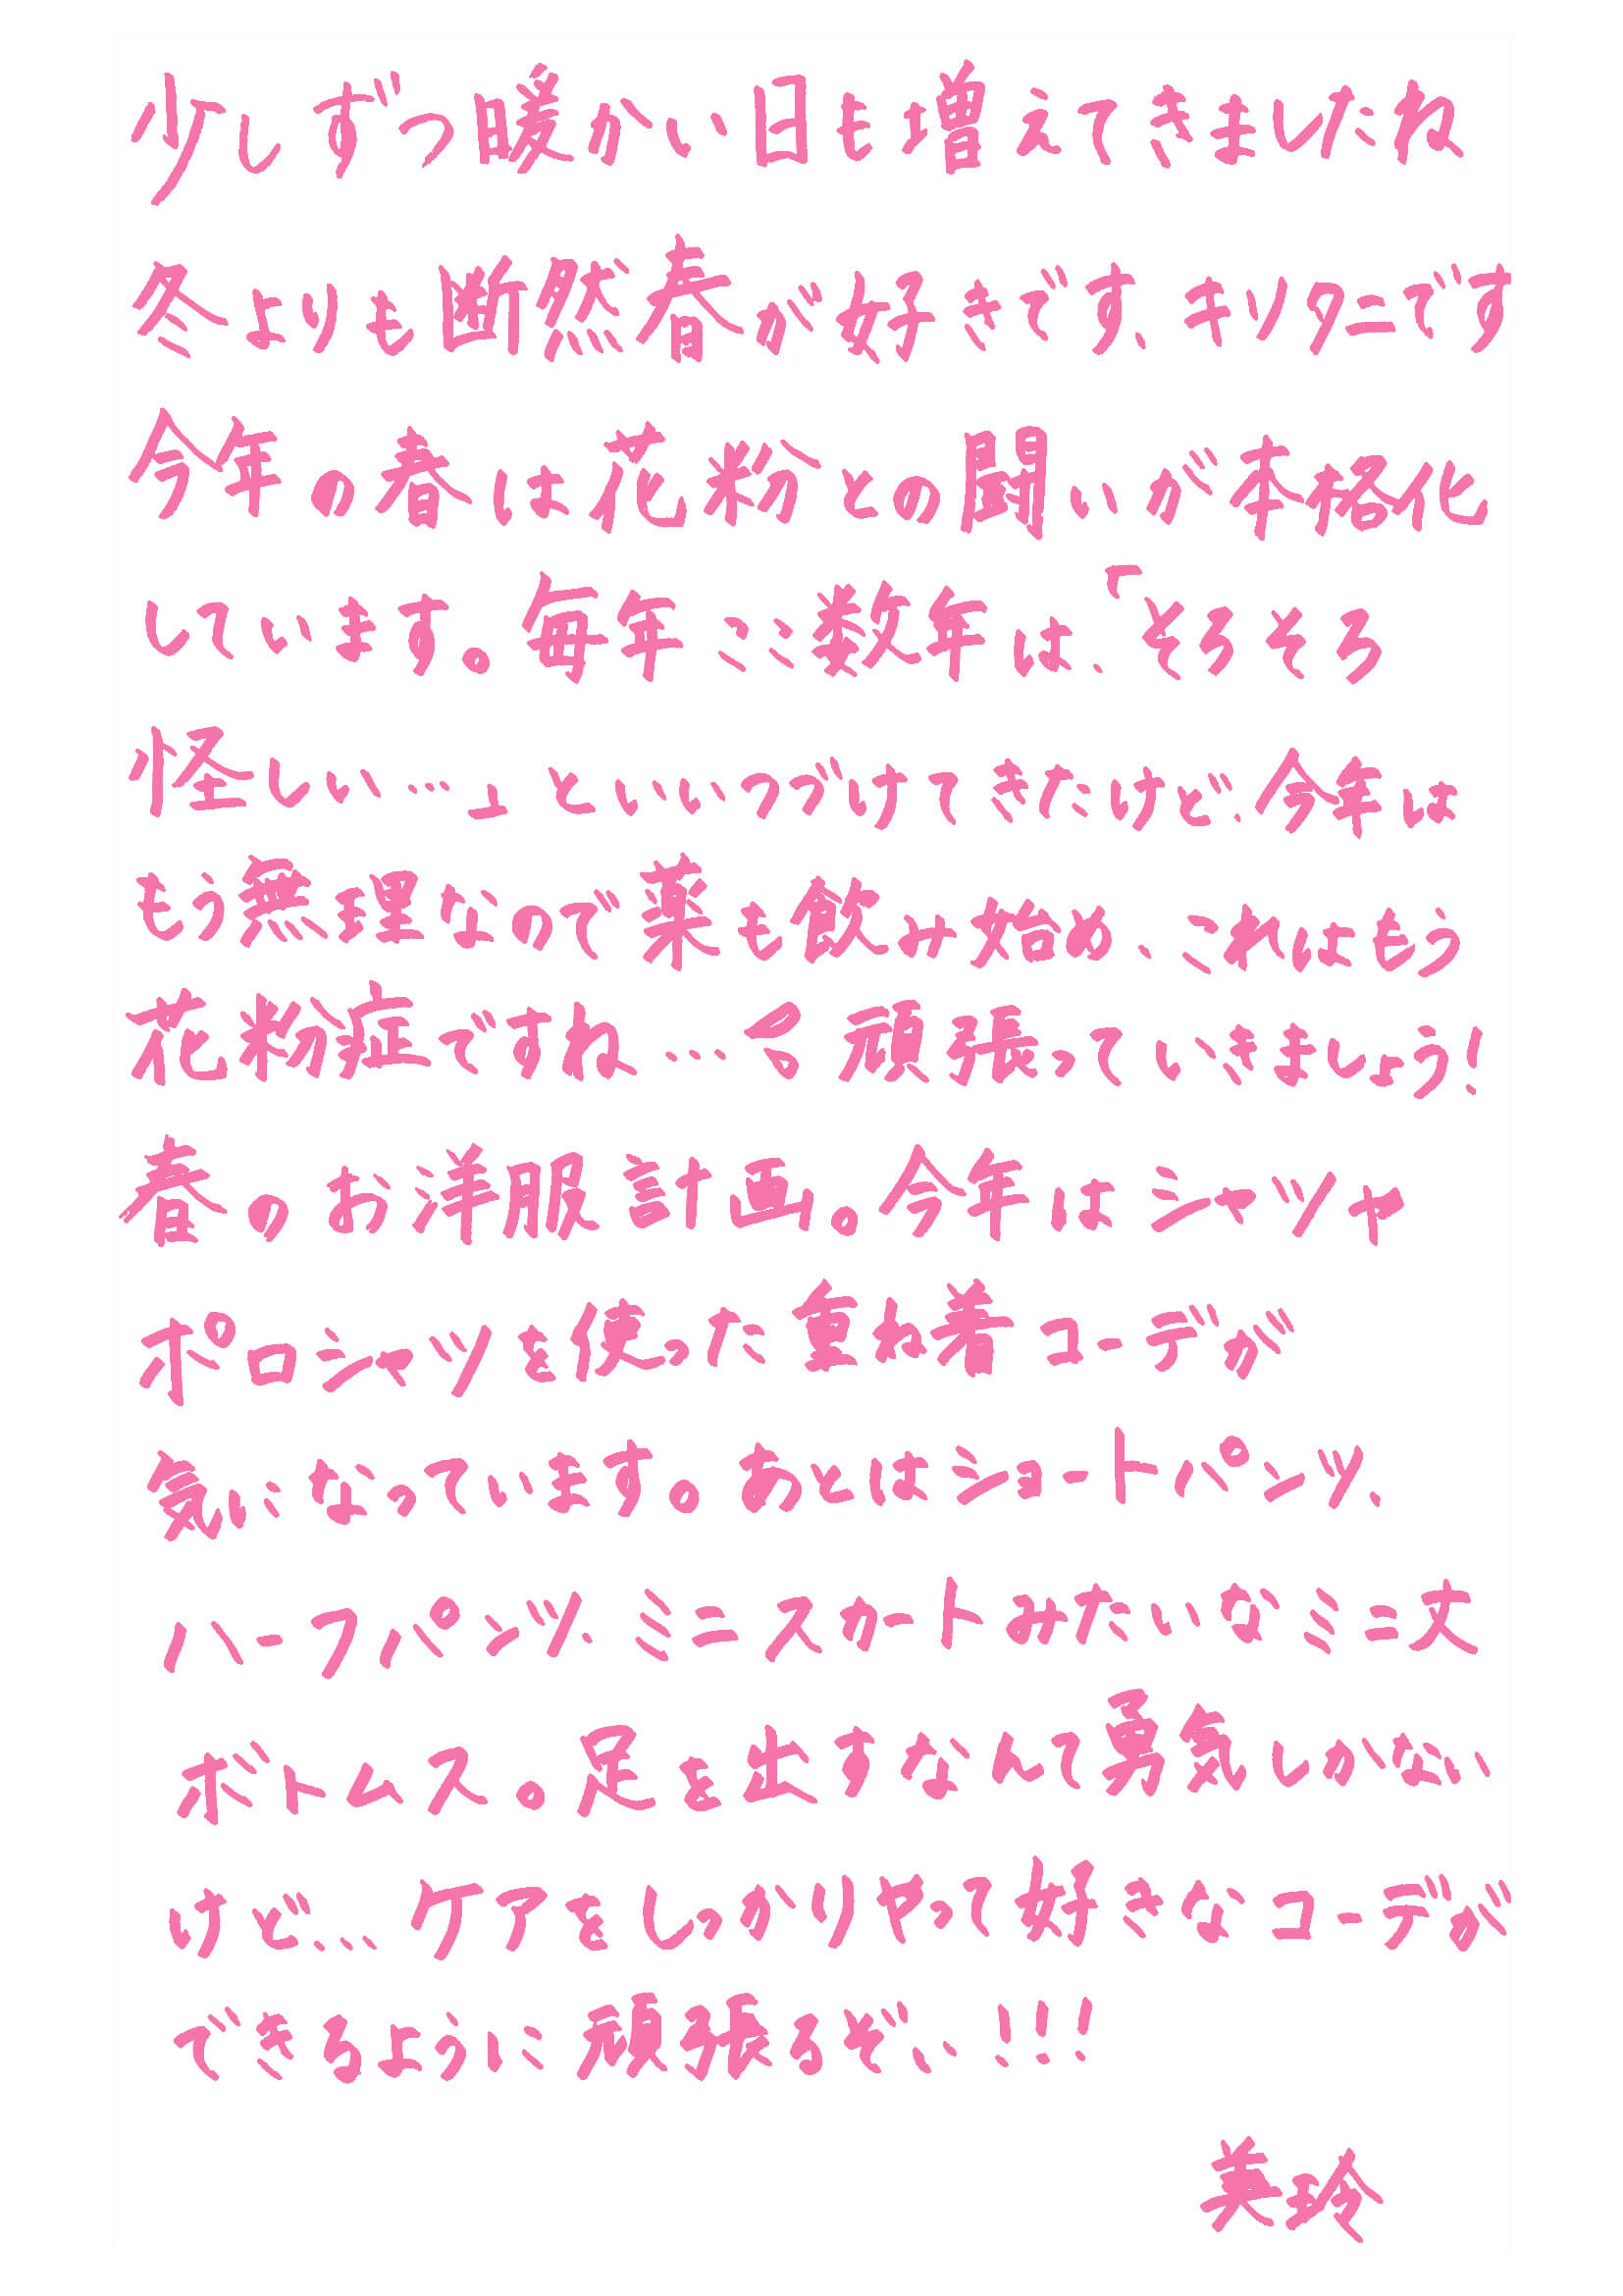 少しずつ暖かい日も増えてきましたね
冬よりも断然春が好きです、キリタニです
今年の春は花粉との闘いが本格化
しています。毎年ここ数年は、「そろそろ
怪しい…」といいつづけてきたけど、今年は
もう無理なので薬も飲み始め、これはもう
花粉症ですね… 頑張っていきましょう!
春のお洋服計画。今年はシャツや
ポロシャツを使った重ね着コーデが
気になっています。あとはショートパンツ、
ハーフパンツ、ミニスカートみたいなミニ丈
ボトムス。足を出すなんて勇気しかない
けど… ケアをしっかりやって好きなコーデが
できるように頑張るぞぃ!!!
美玲